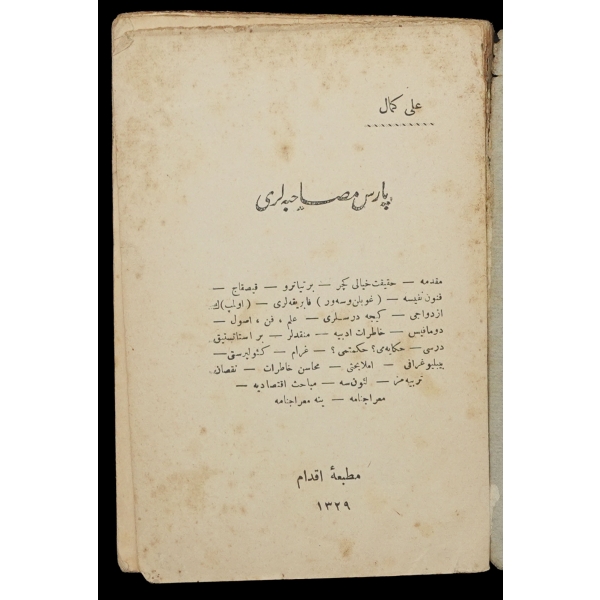 علی کمال
پارس مصاحبه‌لری
مقدمه — حقیقت خیالی کچر — بر تیاترو — قیصقانج —
فنون نفیسه — ( غوبلن وسه‌ور ) فابریقه‌لری — ( اولمپ)ك
ازدواجی — کیجه درسلری — علم ، فن ، اصول —
دومافیس — خاطرات ادبیه — منقدلر — بر استاتیستیق
درسی — حکایه‌می؟ حکمتمی؟ — غرام —
بیبلیوغرافی — املا بحثی — محاسن خاطرات — نقصان
تربیه‌مز — لئون‌سه — مباحث اقتصادیه —
معراجنامه — ینه معراجنامه
مطبعهٔ اقدام
١٣٢٩